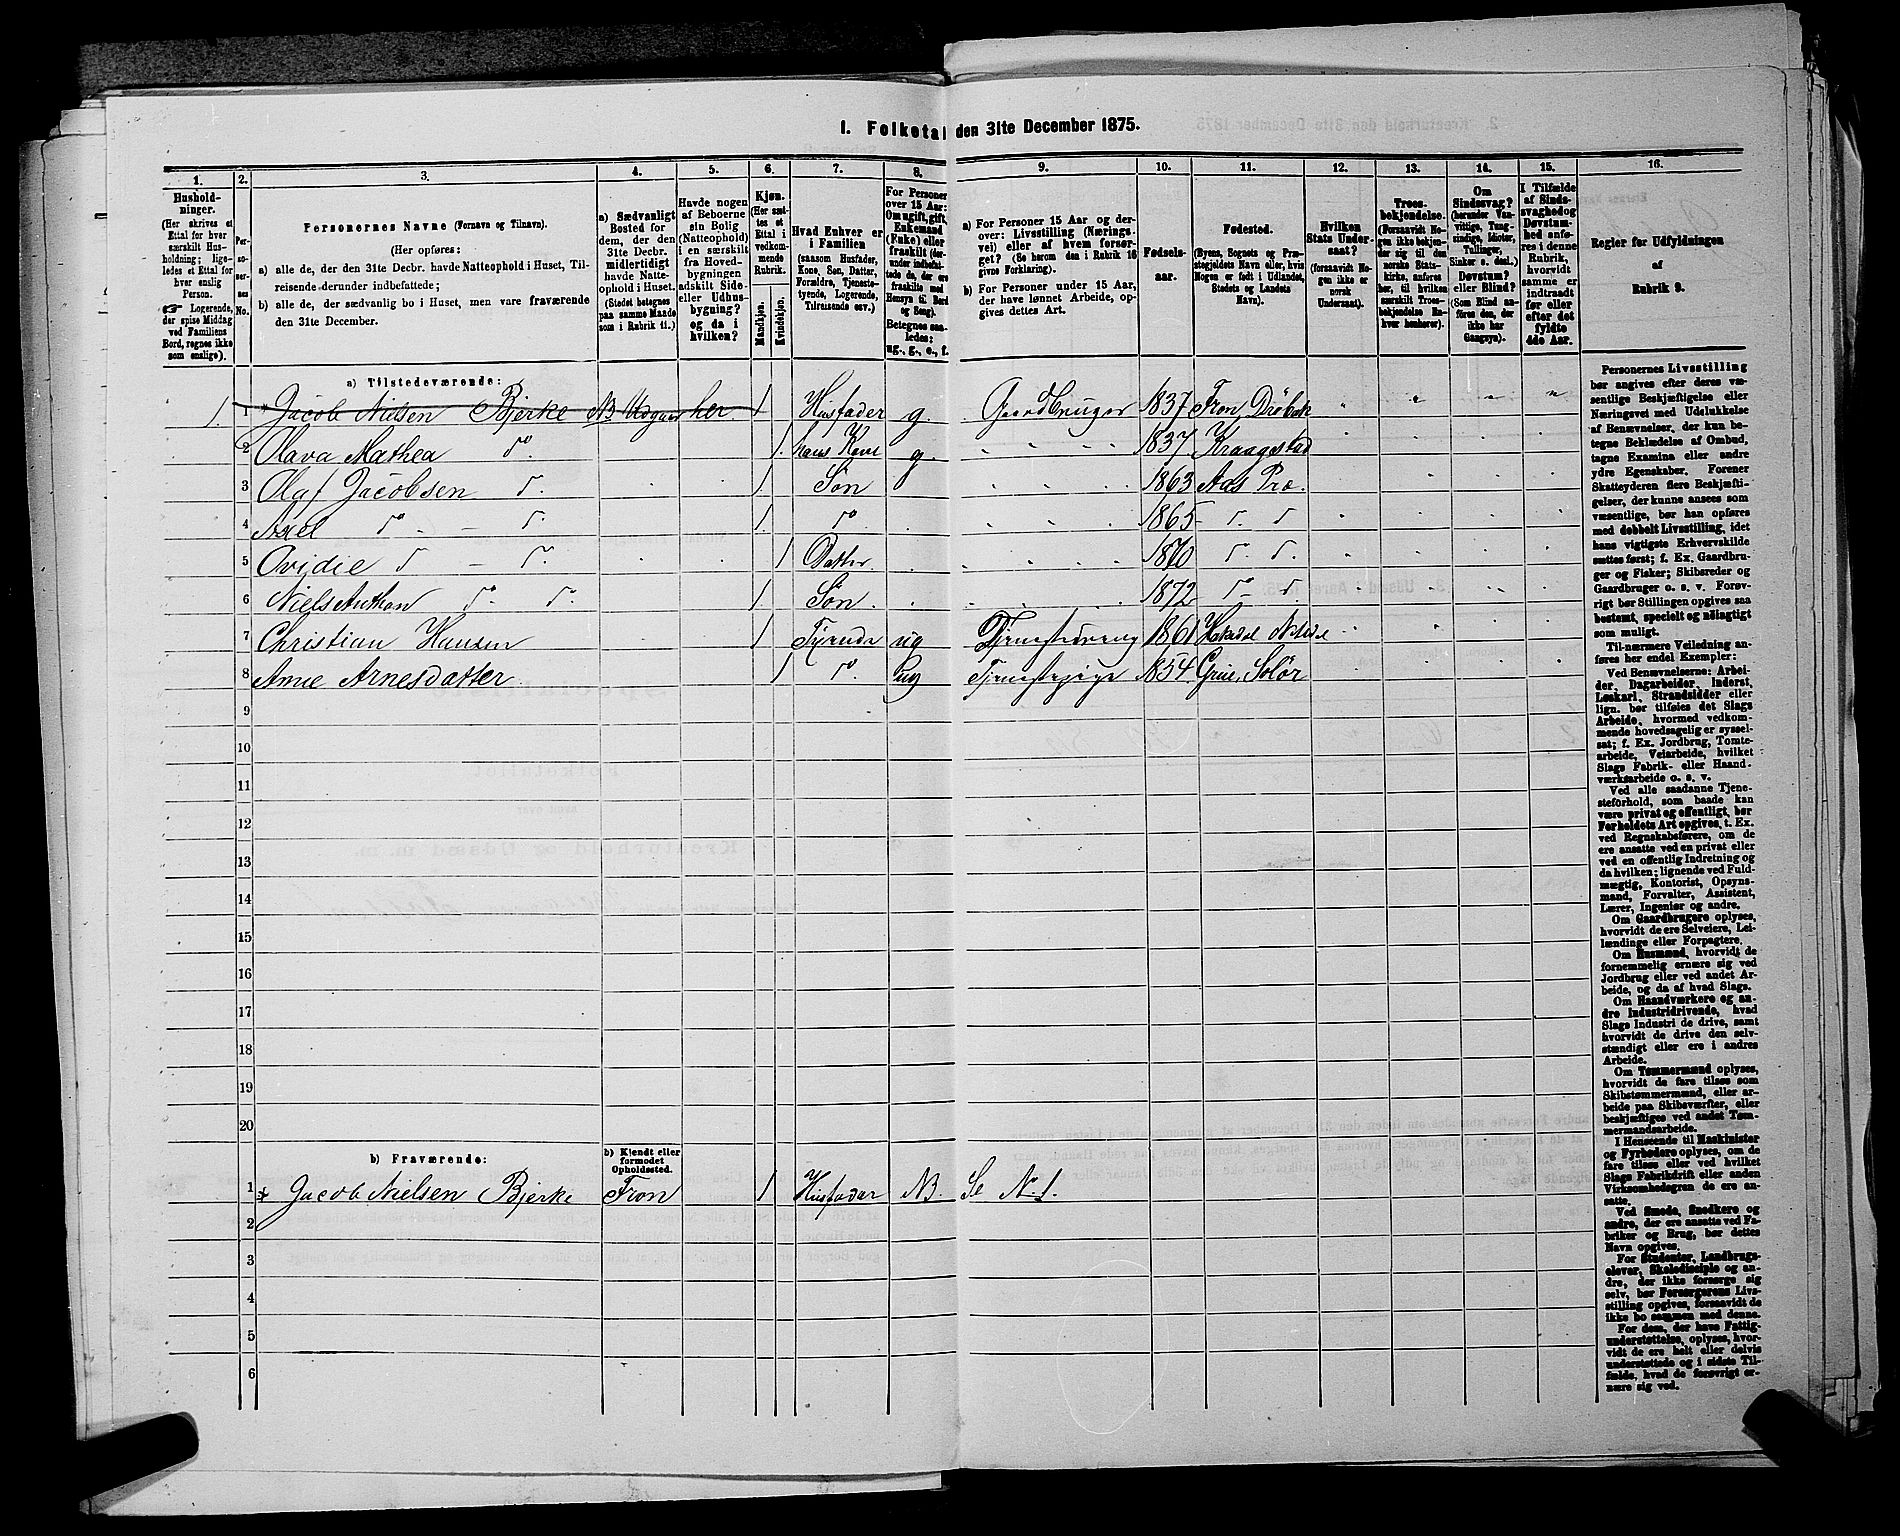 1. Folketal den 31te December 1875.
1. 2. 3. 4. 5. 6. 7. 8. 9. 10. 11. 12. 13. 14. 15. 16.
Hushold-
ninger.
(Her skrives et
Ettal for hver
særskilt Hus-
holdning; lige-
ledes et Ettal for
hver enslig
Person.
☞ Logerende,
der spise Middag
ved Familiens
Bord, regnes ikke
som enslige).
Per-
soner-
nes
No.
Personernes Navne (Fornavn og Tilnavn).
(Her opføres:
a) alle de, der den 31te Decbr. havde Natteophold i Huset, Til-
reisende derunder indbefattede;
b) alle de, der sædvanlig bo i Huset, men vare fraværende
den 31te December.
a) Sædvanligt
Bosted for
dem, der den
31te Decbr.
midlertidigt
havde Natte-
ophold i Huset.
(Stedet betegnes
paa samme Maade
som i Rubrik 11.)
Havde nogen
af Beboerne
sin Bolig
(Natteophold)
i en særskilt
fra Hoved-
bygningen
adskilt Side-
eller Udhus-
bygning?
og da i
hvilken?
Kjøn.
(Her sæt-
tes et
Ettal i
vedkom-
mende
Rubrik.
Mandkjøn.
Kvindekjøn.
Hvad Enhver er
i Familien
(saasom Husfader,
Kone, Søn, Datter,
Forældre, Tjeneste-
tyende, Logerende,
Tilreisende osv.)
For Personer
over 15 Aar:
Om ugift, gift,
Enkemand
(Enke) eller
fraskilt (der-
under indbefat-
tede de, der ere
fraskilte med
Hensyn til Bord
og Seng).
Betegnes saa-
ledes:
ug., g., e., f.
a) For Personer 15 Aar og der-
over: Livsstilling (Nærings-
vei) eller af hvem forsør-
get? (Se herom den i Rubrik 16
givne Forklaring).
b) For Personer under 15 Aar,
der have lønnet Arbeide, op-
gives dettes Art.
Fødsels-
aar.
Fødested.
(Byens, Sognets og Præ-
stegjeldets Navn eller, hvis
Nogen er født i Udlandet,
Stedets og Landets
Navn).
Hvilken
Stats Under-
saat?
(forsaavidt No-
gen ikke er
norsk
Undersaat).
Troes-
bekjendelse.
(Forsaavidt No-
gen ikke bekjen-
der sig til den
norske Stats-
kirke, anføres
her, til hvilken
særskilt Troes-
bekjendelse En-
hver henhører).
Om
Sindssvag?
(herunder Van-
vittige, Tung-
sindige, Idioter,
Tullinger,
Sinker o. desl.)
Døvstum?
eller Blind?
(Som Blind an-
føres den, der
ikke har
Gangsyn).
I Tilfælde
af Sinds-
svaghed og
Døvstum-
hed anfø-
res i denne
Rubrik,
hvorvidt
samme er
indtraadt
før eller
efter det
fyldte
4de Aar.
Regler for Udfyldningen
af
Rubrik 9.
a) Tilstedeværende:
1. 1 * Jacob Nielsen Bjerke her 1 Husfader g. Gaardbruger 1837 Fron, Drøbak
2 Olava Mathea do. 1. hans Kone g. 1837 Kraagstad
3 Olaf Jacobsen d. 1. Søn 1863 Aas Præ.
4 Axel do - d. 1. do 1865 - d. d
5 Ovidie d - d. 1 Datter. 1870 d. d.
6 Niels Anthon do. do. 1. Søn. 1872 do d.
7 Christian Hansen 1 Tjende ug Tjenestedreng 1861
8 Anne Arnesdatter 1 do. ug Tjenestepige 1854 Grue, Solør
9
10
11
12
13
14
15
16
17
18
19
20
b) Fraværende:
b) Kjendt eller
formodet
Opholdssted.
1 * Jacob Nielsen Bjerke Fron 1 Husfader NB. Se No 1.
2
3
4
5
6
Personernes Livsstilling
bør angives efter deres væ-
sentlige Beskjæftigelse eller
Næringsvei med Udelukkelse
af Benævnelser, der kun be-
tegne Beklædelse af Ombud,
tagne Examina eller andre
ydre Egenskaber. Forener
Skatteyderen flere Beskjæfti-
gelser, der kunne ansees som
væsentlige, bør han opføres
med dobbelt Livsstilling, idet
hans vigtigste Erhvervskilde
sættes først; f. Ex. Gaardbru-
ger og Fisker; Skibsreder og
Gaardbruger o. s. v. Forøv-
rigt bør Stillingen opgives saa
bestemt, specielt og nøiagtigt
som muligt.
Til nærmere Veiledning an-
føres her endel Exempler:
Ved Benævnelserne: Arbei-
der, Dagarbeider, Inderst,
Løskarl, Strandsidder eller
lign. bør tilføies det Slags
Arbeide, hvormed vedkom-
mende hovedsagelig er syssel-
sat; f. Ex. Jordbrug, Tomte-
arbeide, Veiarbeide, hvilket
Slags Fabrik- eller Haand-
værksarbeide o. s. v.
Ved alle saadanne Tjene-
steforhold, som baade kan
være privat og offentligt, bør
Forholdets Art opgives, t. Ex.
ved Regnskabsførere, om de
ere ansatte ved en privat eller
ved en offentlig Indretning og
da hvilken; lignende ved Fuld-
mægtig, Kontorist, Opsyns-
mand, Forvalter, Assistent,
Lærer, Ingeniør og andre.
Om Gaardbrugere oplyses,
hvorvidt de ere Selveiere, Lei-
lændinge eller Forpagtere.
Om Husmænd, hvorvidt de
fornemmelig ernære sig ved
Jordbrug eller ved andet Ar-
beide, og da af hvad Slags.
Om Haandværkere og an-
dre Industridrivende, hvad
Slags Industri de drive, samt
hvorvidt de drive den selv-
stændigt eller ere i andres
Arbeide.
Om Tømmermænd oplyses,
hvorvidt de fare tilsøs som
Skibstømmermænd, eller ar-
beide paa Skibsværfter, eller
beskjæftiges ved andet Tøm-
mermandsarbeide.
I Henseende til Maskinister
og Fyrbødere oplyses, om de
fare tilsøs eller ved hvilket
Slags Fabrikdrift eller anden
Virksomhedsgren de ere an-
satte.
Ved Smede, Snedkere og
andre, der ere ansatte ved Fa-
briker og Brug, bør dettes
Navn opgives.
For Studenter, Landbrugs-
elever, Skoledisciple og an-
dre, der ikke forsørge sig
selv, bør Forsørgerens Livs-
stilling opgives, forsaavidt de
ikke bo sammen med denne.
For dem, der have Fattig-
understøttelse, oplyses, hvor-
vidt de ere helt eller delvis
understøttede og i sidste Til-
fælde, hvad de forøvrigt er-
nære sig ved.